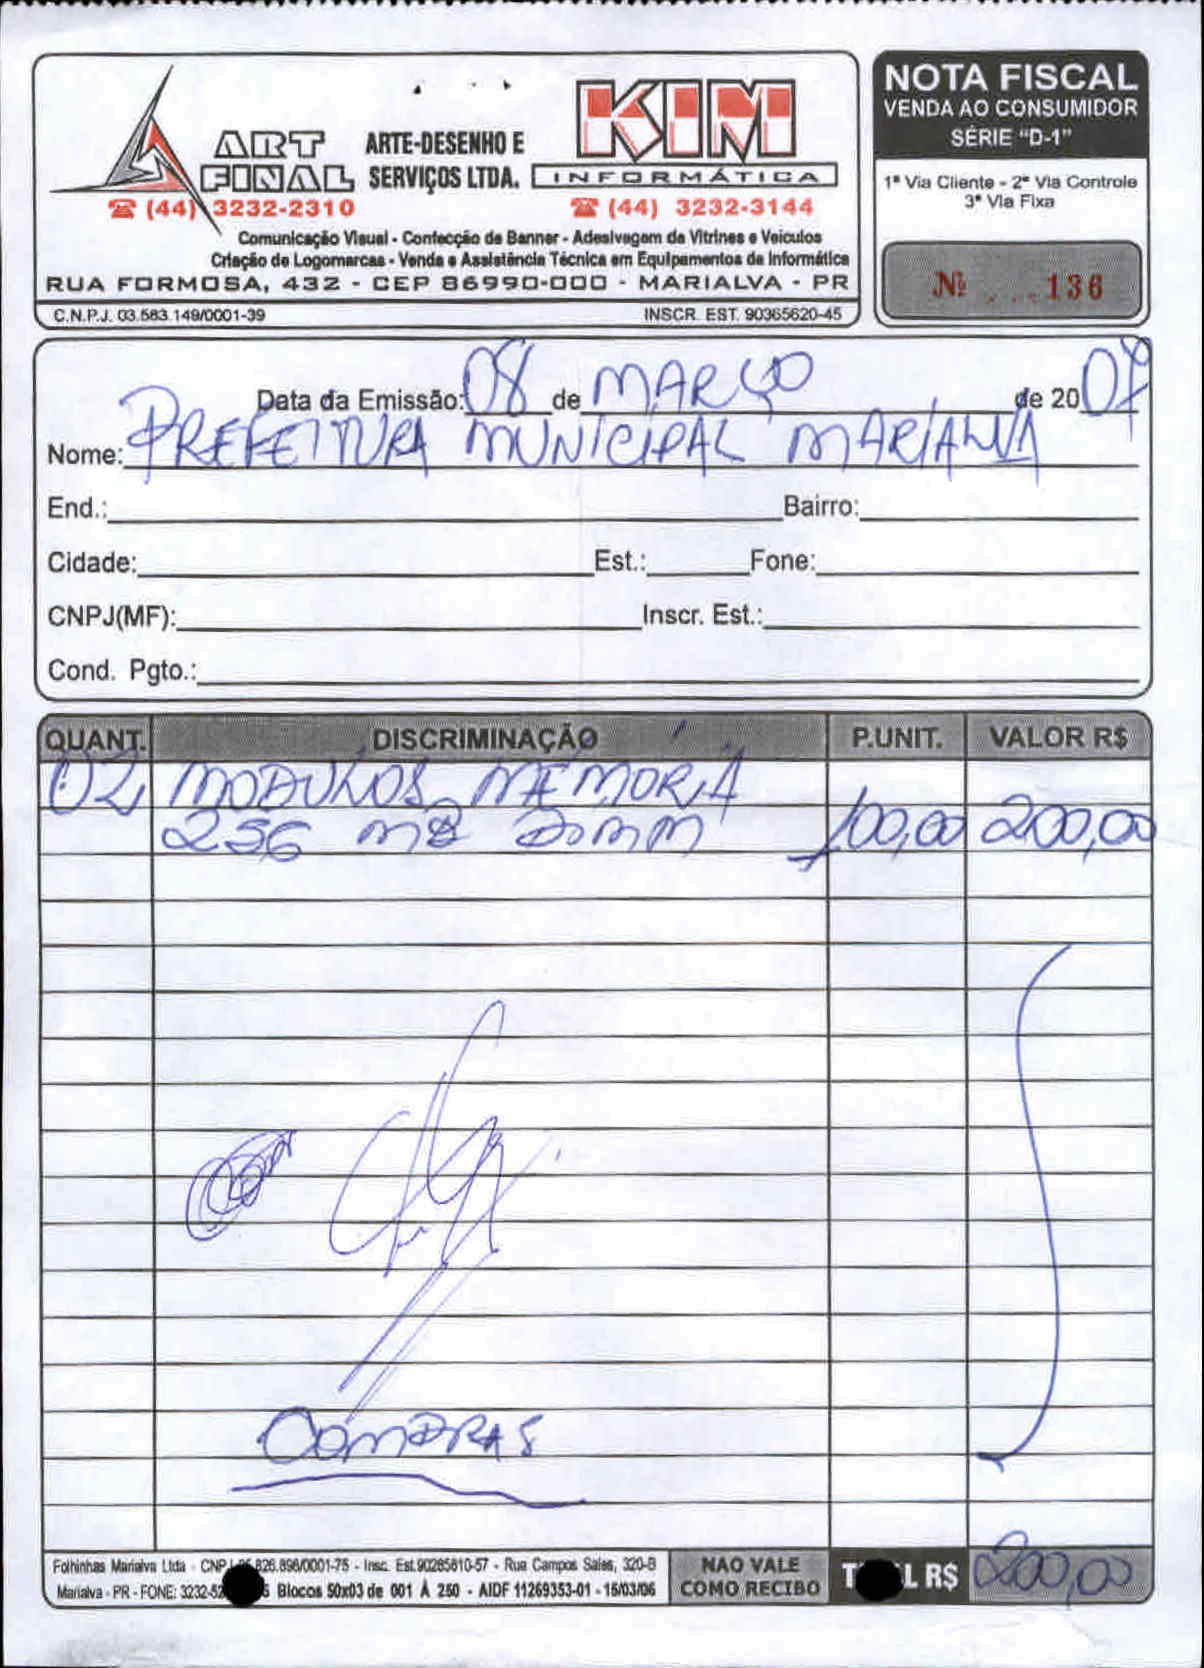 ART FINAL
ARTE-DESENHO E SERVIÇOS LTDA.
KIM
INFORMÁTICA
(44) 3232-2310
(44) 3232-3144
Comunicação Visual - Confecção de Banner - Adesivagem de Vitrines e Veiculos
Criação de Logomarcas - Venda e Assistência Técnica em Equipamentos de Informática
RUA FORMOSA, 432 - CEP 86990-000 - MARIALVA - PR
C.N.P.J. 03.583.149/0001-39 INSCR. EST. 90365620-45
NOTA FISCAL
VENDA AO CONSUMIDOR
SÉRIE "D-1"
1ª Via Cliente - 2ª Via Controle
3ª Via Fixa
Nº 136
Data da Emissão: 08 de MARÇO de 2007
Nome: PREFEITURA MUNICIPAL MARIALVA
End.: Bairro:
Cidade: Est.: Fone:
CNPJ(MF): Inscr. Est.:
Cond. Pgto.:
QUANT. DISCRIMINAÇÃO P.UNIT. VALOR R$
02 MODULOS MEMORIA
256 MB DIMM 100,00 200,00
COMPRAS
Folhinhas Marialva Ltda - CNPJ 826.896/0001-75 - Insc. Est.90285810-57 - Rua Campos Sales, 320-B
Marialva - PR - FONE: 3232-52 Blocos 50x03 de 001 À 250 - AIDF 11269353-01 - 15/03/06
NAO VALE
COMO RECIBO
TOTAL R$ 200,00